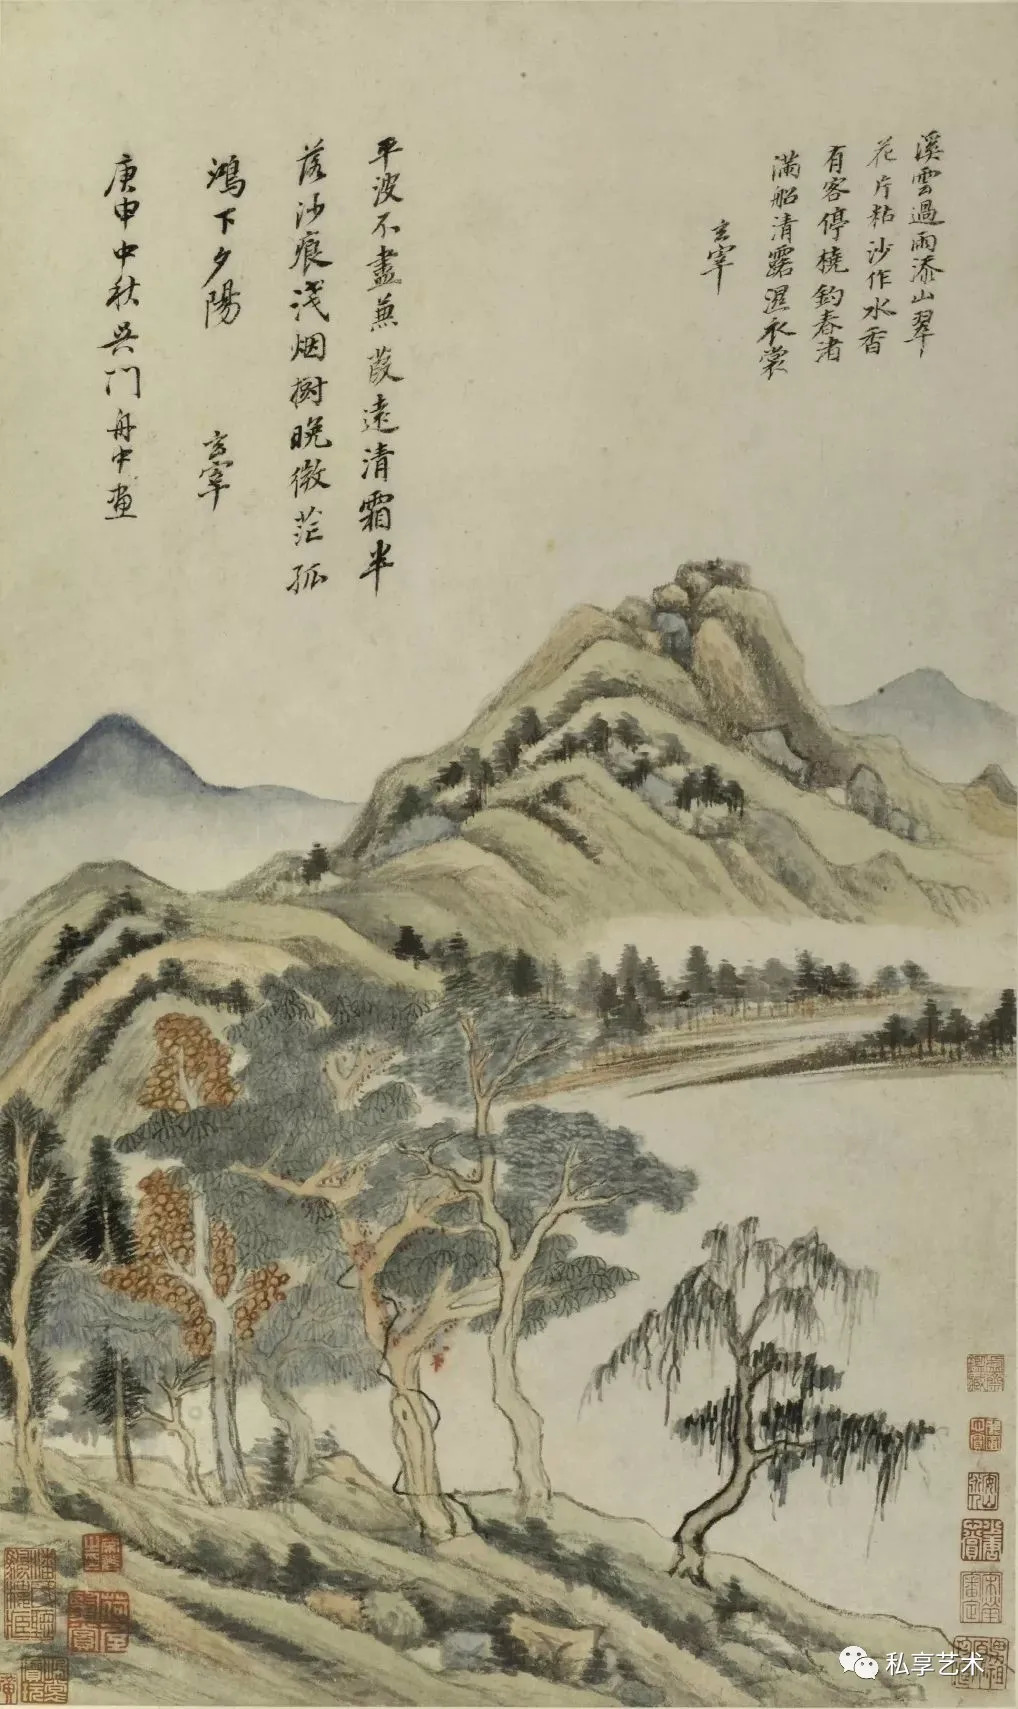 溪雲過雨添山翠
花片粘沙作水香
有客停橈釣春渚
滿船清露濕衣裳
玄宰
平波不盡蒹葭遠清霜半
落沙痕淺烟樹晚微茫孤
鴻下夕陽
玄宰
庚申中秋吳門舟中畫
私享艺术